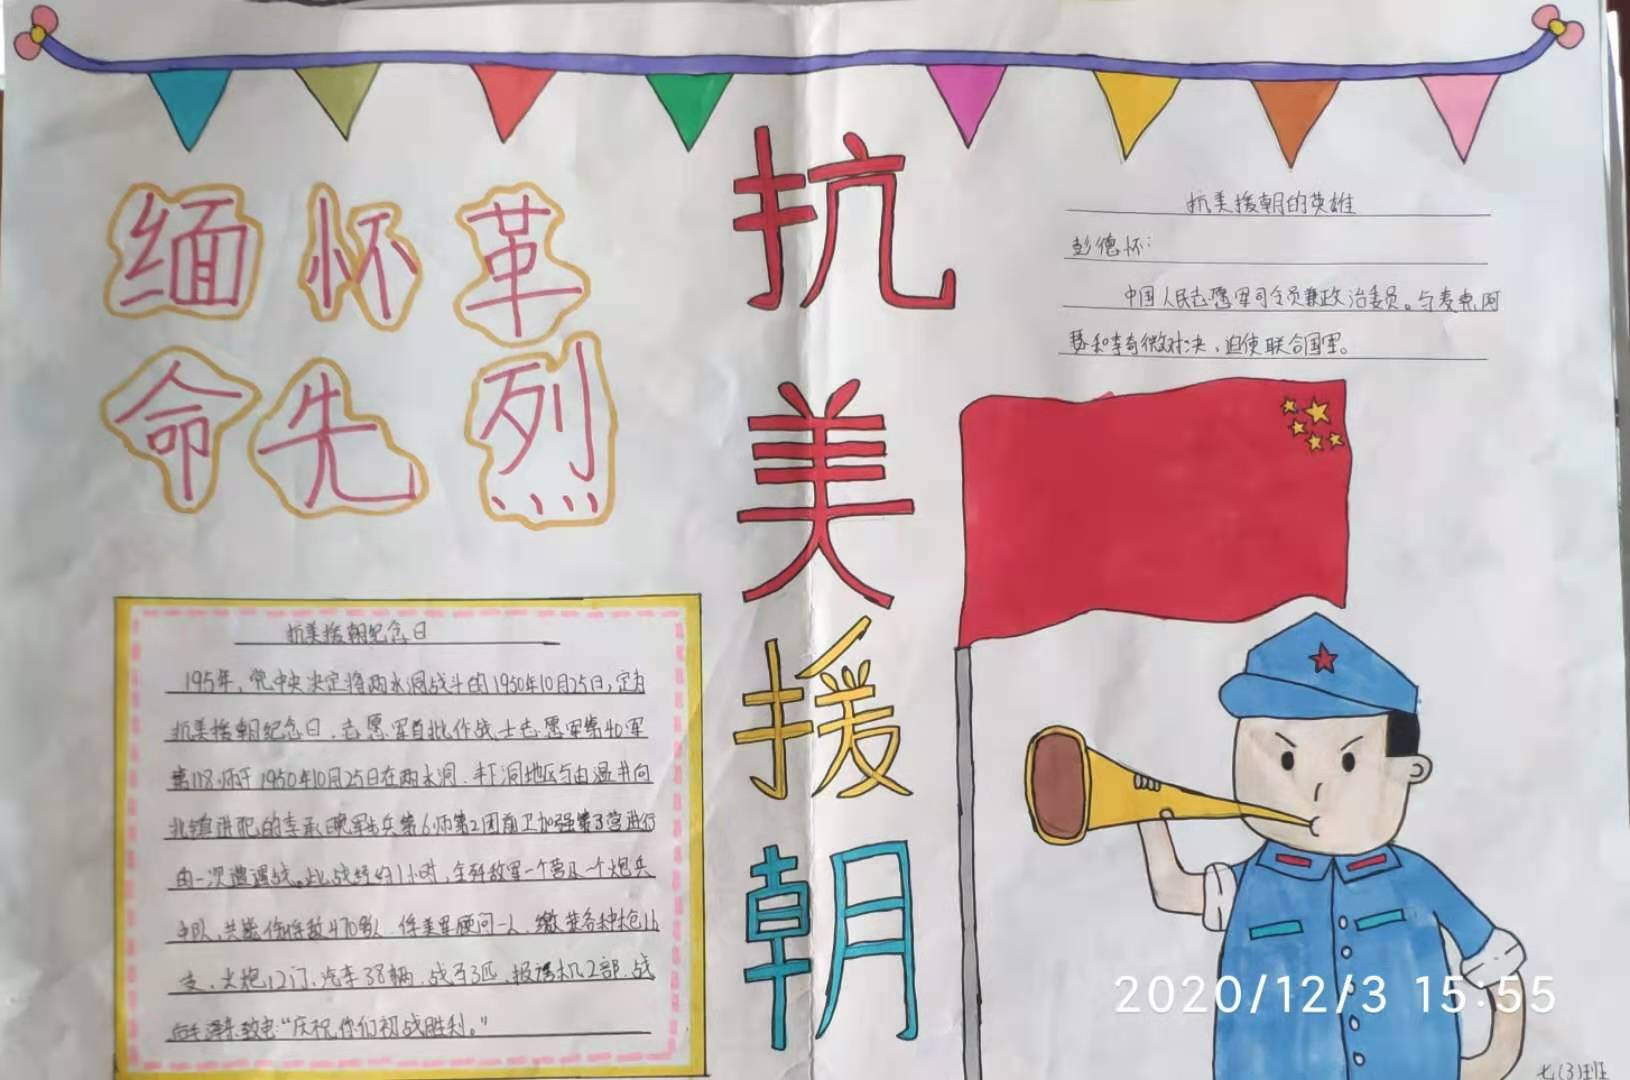 缅怀革
命先烈
抗美援朝
抗美援朝的英雄
彭德怀:
中国人民志愿军司令员兼政治委员。与麦克阿
瑟和李奇微对决,迫使联合国军。
抗美援朝纪念日
195年,党中央决定将两水洞战斗的1950年10月25日,定为
抗美援朝纪念日.志愿军首批作战士志愿军第40军
第118师于1950年10月25日在两水洞.丰下洞地区与由温井向
北镇进犯的李承晚军步兵第6师第2团前卫加强第3营进行
的一次遭遇战.此战经约1小时,全歼敌军一个营及一个炮兵
中队,共毙伤俘敌470多人.俘美军顾问一人.缴获各种枪16
支、火炮12门.汽车38辆.战马3匹.报话机2部.战
后毛泽东致电“庆祝你们初战胜利。”
2020/12/3 15:55
七(3)班